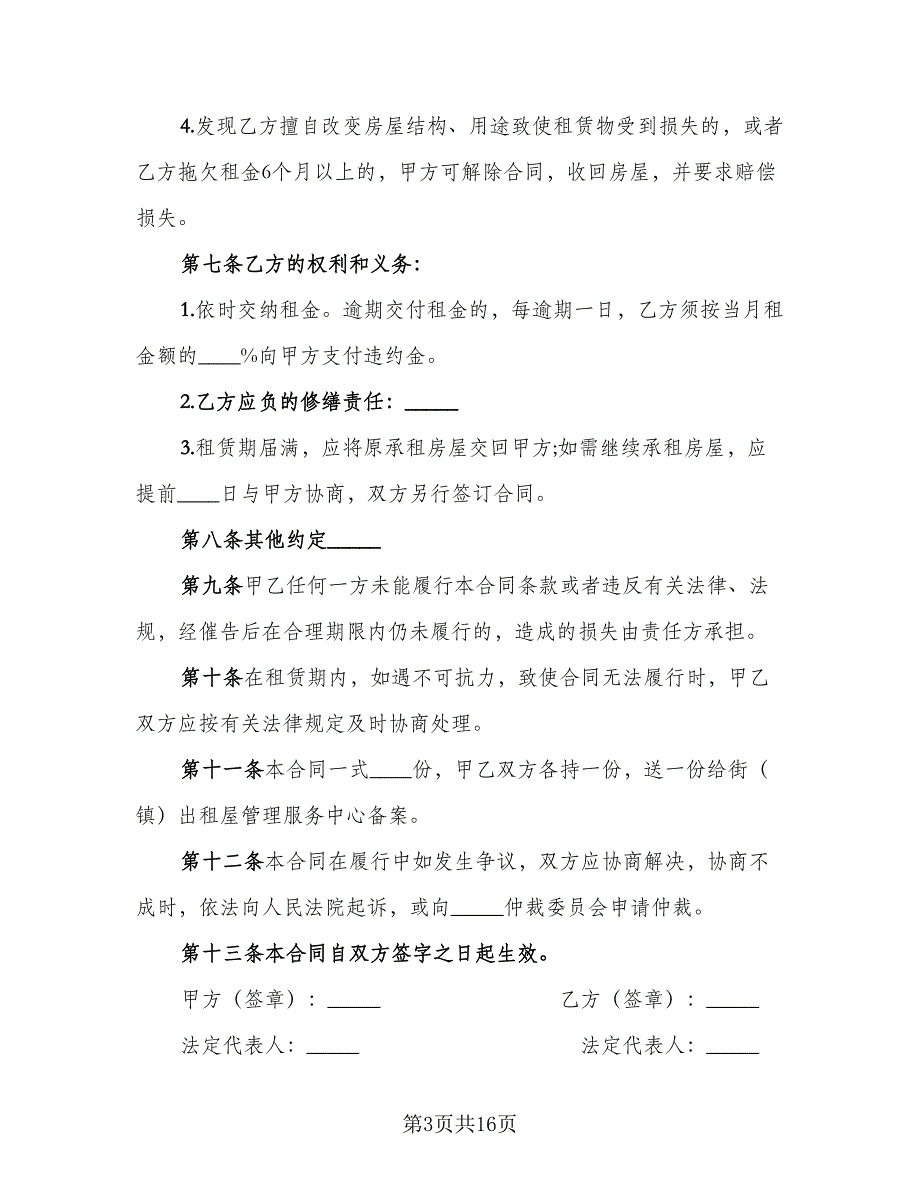 4.发现乙方擅自改变房屋结构、用途致使租赁物受到损失的，或者
乙方拖欠租金6个月以上的，甲方可解除合同，收回房屋，并要求赔偿
损失。
第七条乙方的权利和义务：
1.依时交纳租金。逾期交付租金的，每逾期一日，乙方须按当月租
金额的____%向甲方支付违约金。
2.乙方应负的修缮责任：_____
3.租赁期届满，应将原承租房屋交回甲方;如需继续承租房屋，应
提前____日与甲方协商，双方另行签订合同。
第八条其他约定_____
第九条甲乙任何一方未能履行本合同条款或者违反有关法律、法
规，经催告后在合理期限内仍未履行的，造成的损失由责任方承担。
第十条在租赁期内，如遇不可抗力，致使合同无法履行时，甲乙
双方应按有关法律规定及时协商处理。
第十一条本合同一式____份，甲乙双方各持一份，送一份给街（
镇）出租屋管理服务中心备案。
第十二条本合同在履行中如发生争议，双方应协商解决，协商不
成时，依法向人民法院起诉，或向_____仲裁委员会申请仲裁。
第十三条本合同自双方签字之日起生效。
甲方（签章）：_____ 乙方（签章）：_____
法定代表人：_____ 法定代表人：_____
第3页共16页